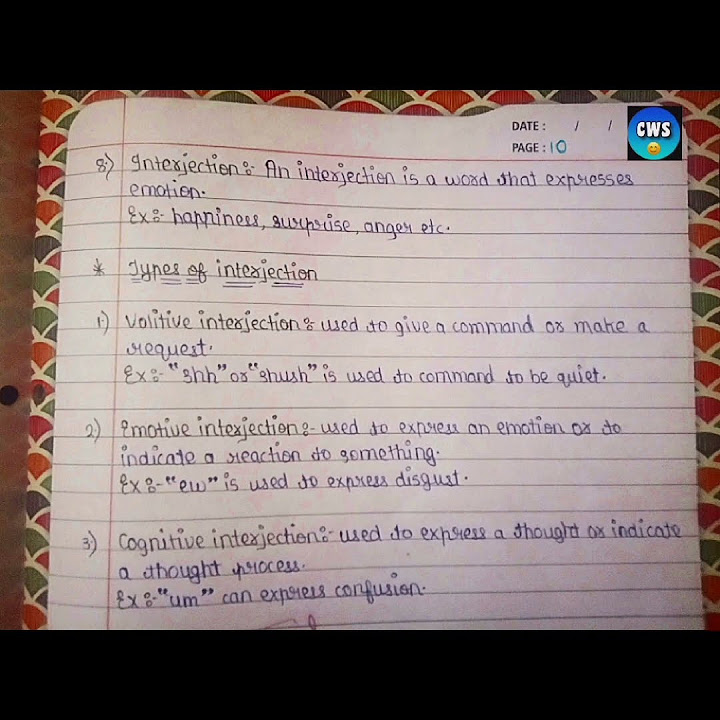 DATE : / /
CWS
PAGE : 10
8.) Interjection :- An interjection is a word that expresses
emotion.
Ex :- happiness, surprise, anger etc.
* Types of interjection
1) Volitive interjection : used to give a command or make a
request.
Ex :- "Shh" or "Shush" is used to command to be quiet.
2) Emotive interjection :- used to express an emotion or to
indicate a reaction to something.
Ex :- "ew" is used to express disgust.
3) Cognitive interjection :- used to express a thought or indicate
a thought process.
Ex :- "um" can express confusion.